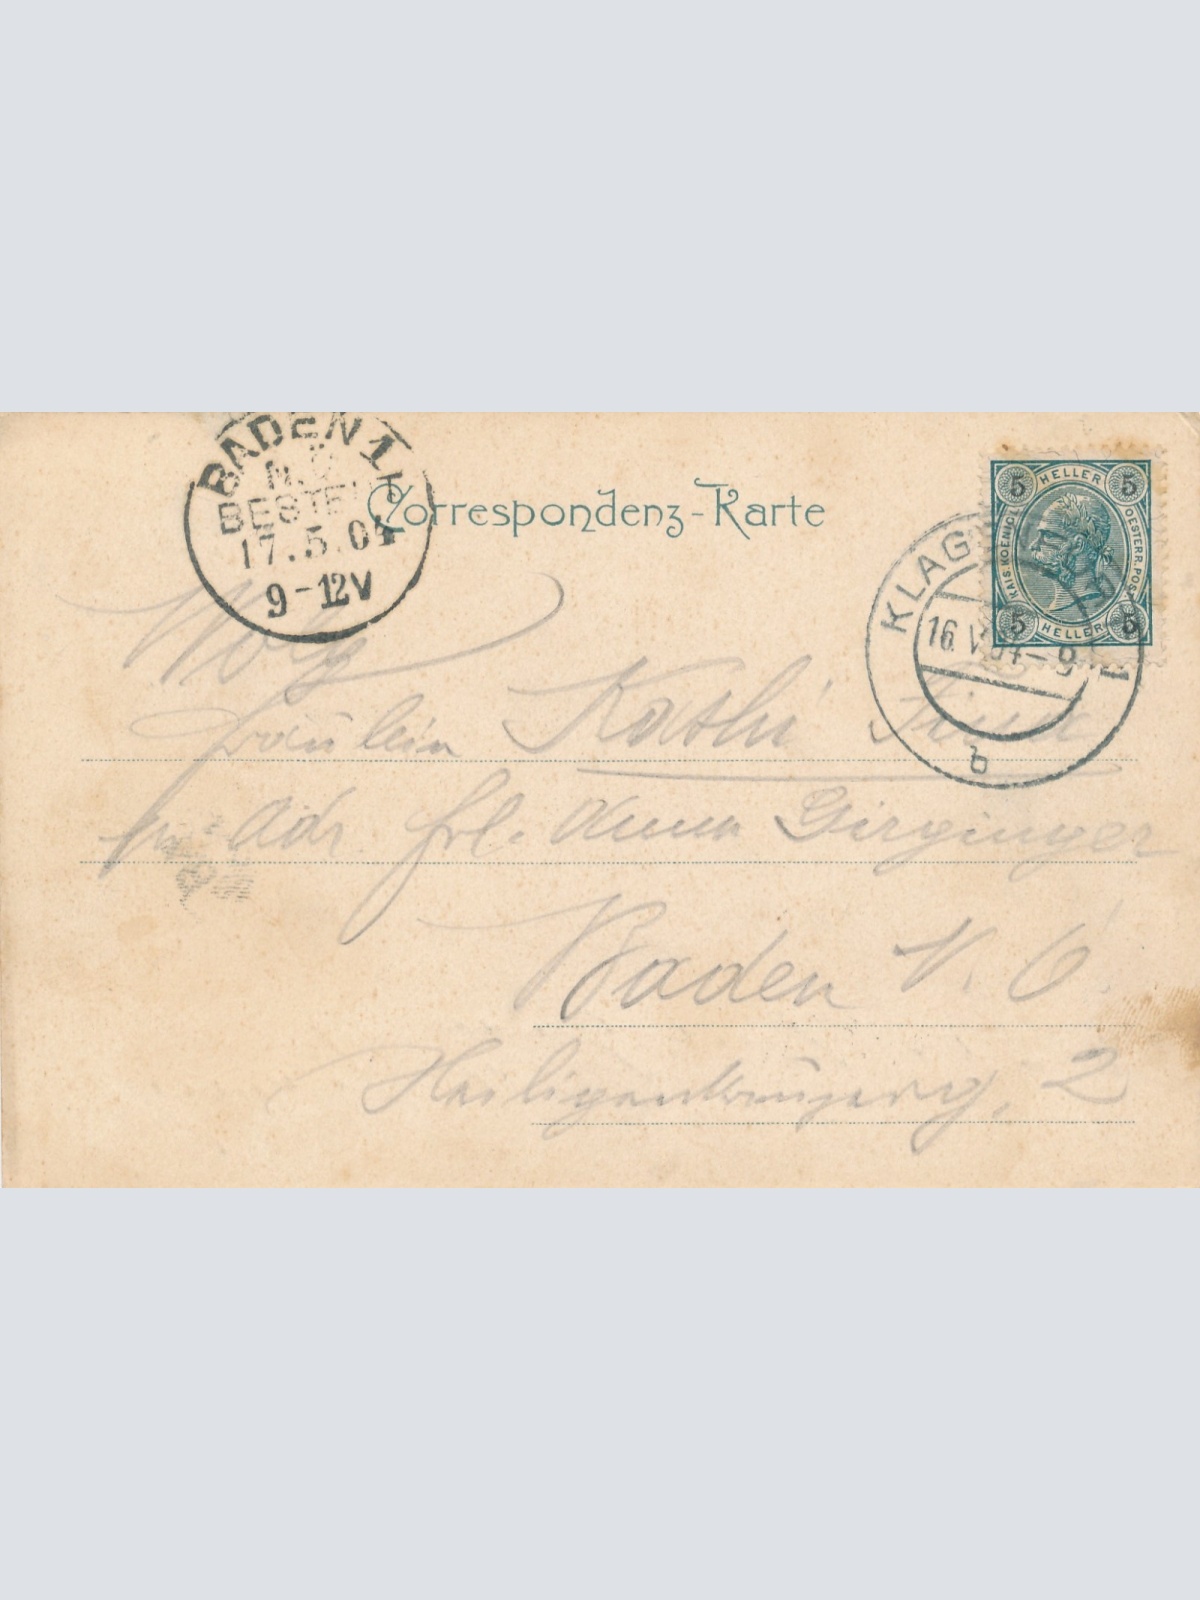 BADEN 1
N.Ö.
BESTELLT
17.5.04
9-12V
Correspondenz-Karte
5 HELLER 5
KAIS.KOENIGL. OESTERR.POST
5 HELLER 5
KLAG
16.V.04-9
1
b
Wolg
Fräulein Kathi
pr. Adr. Frl. Anna Girginger
Baden N.Ö.
2